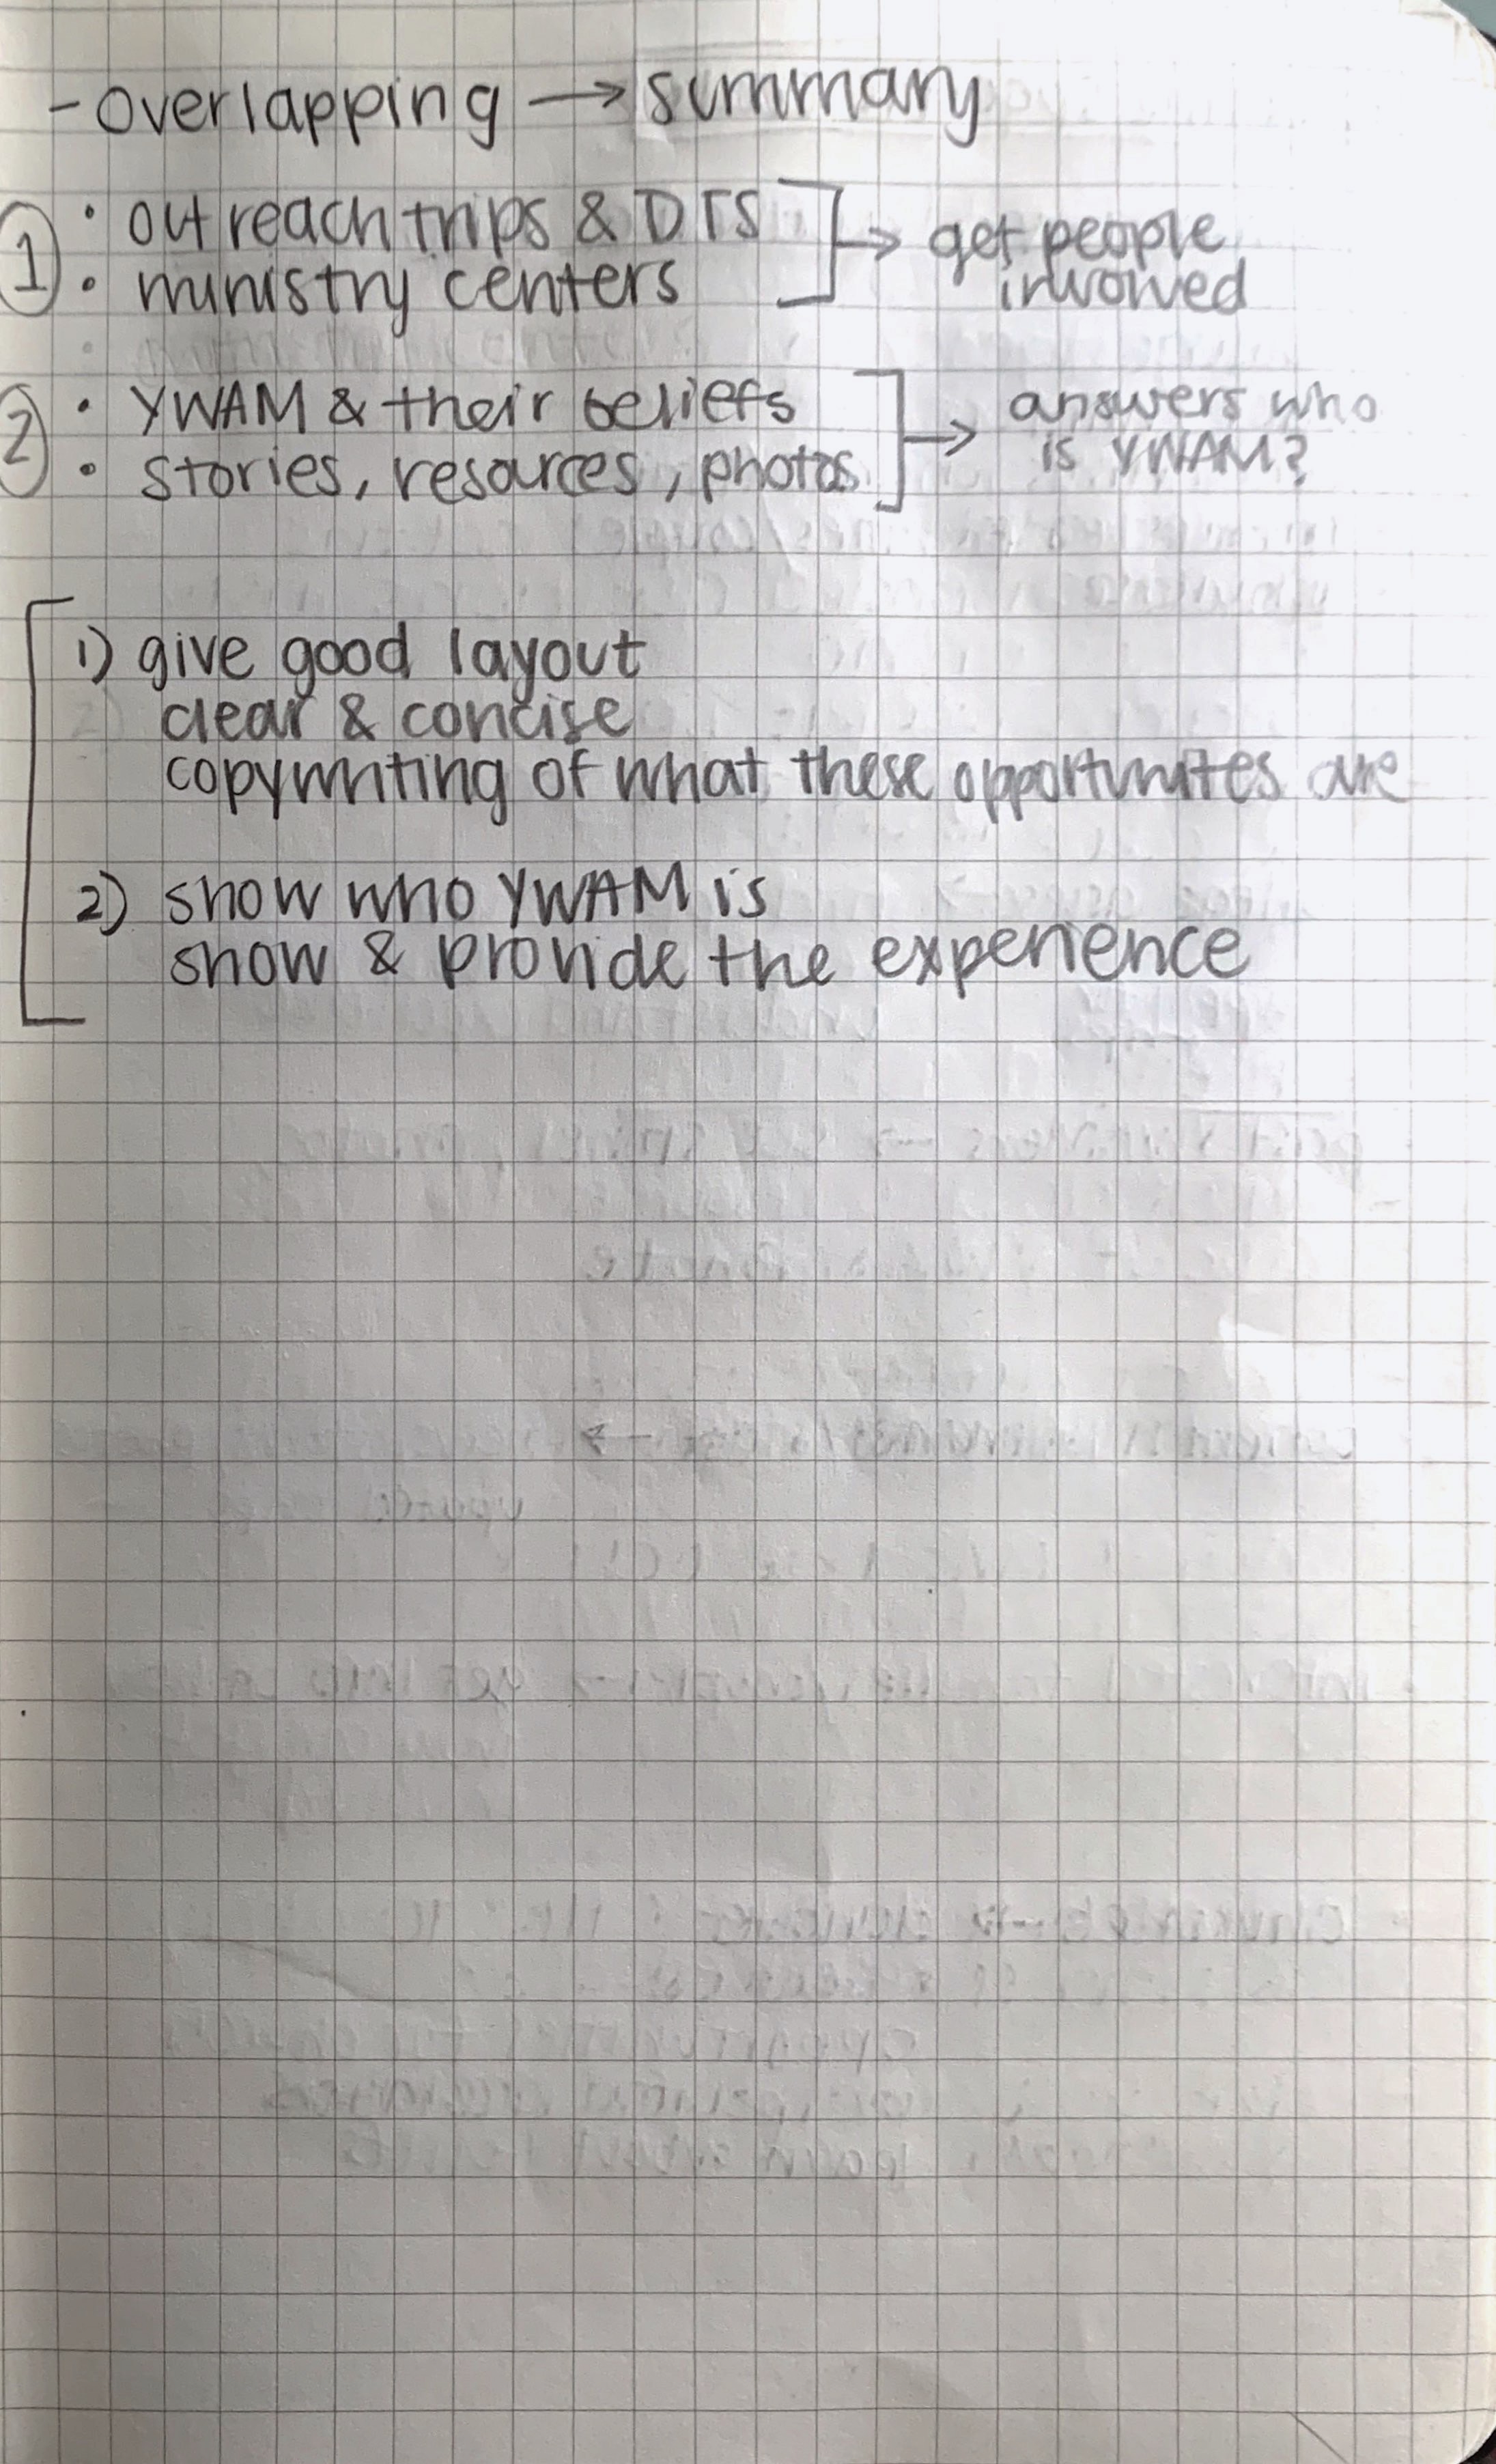 - overlapping → summary
① • outreach trips & DTS → get people
• ministry centers involved
② • YWAM & their beliefs → answers who
• stories, resources, photos is YWAM?
1) give good layout
clear & concise
copywriting of what these opportunites are
2) show who YWAM is
show & provide the experience